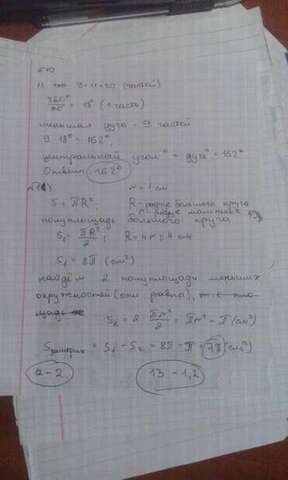 №10
9+11=20 (частей)
360°/20 = 18° (1 часть)
меньшая дуга - 9 частей
9·18° = 162°
центральный угол° = дуге° = 162°
Ответ: 162°
r = 1 см
S = πR², R - радиус большого круга
r - радиус маленьких
полуплощадь большого круга
S₁ = πR²/2; R = 4r = 4 см
S₁ = 8π (см²)
найдём 2 полуплощади меньших
окружностей (они равны),
S₂ = 2·πr²/2 = πr² = π (см²)
= S₁ - S₂ = 8π - π = 7π (см²)
2 - 2 13 - 1,2